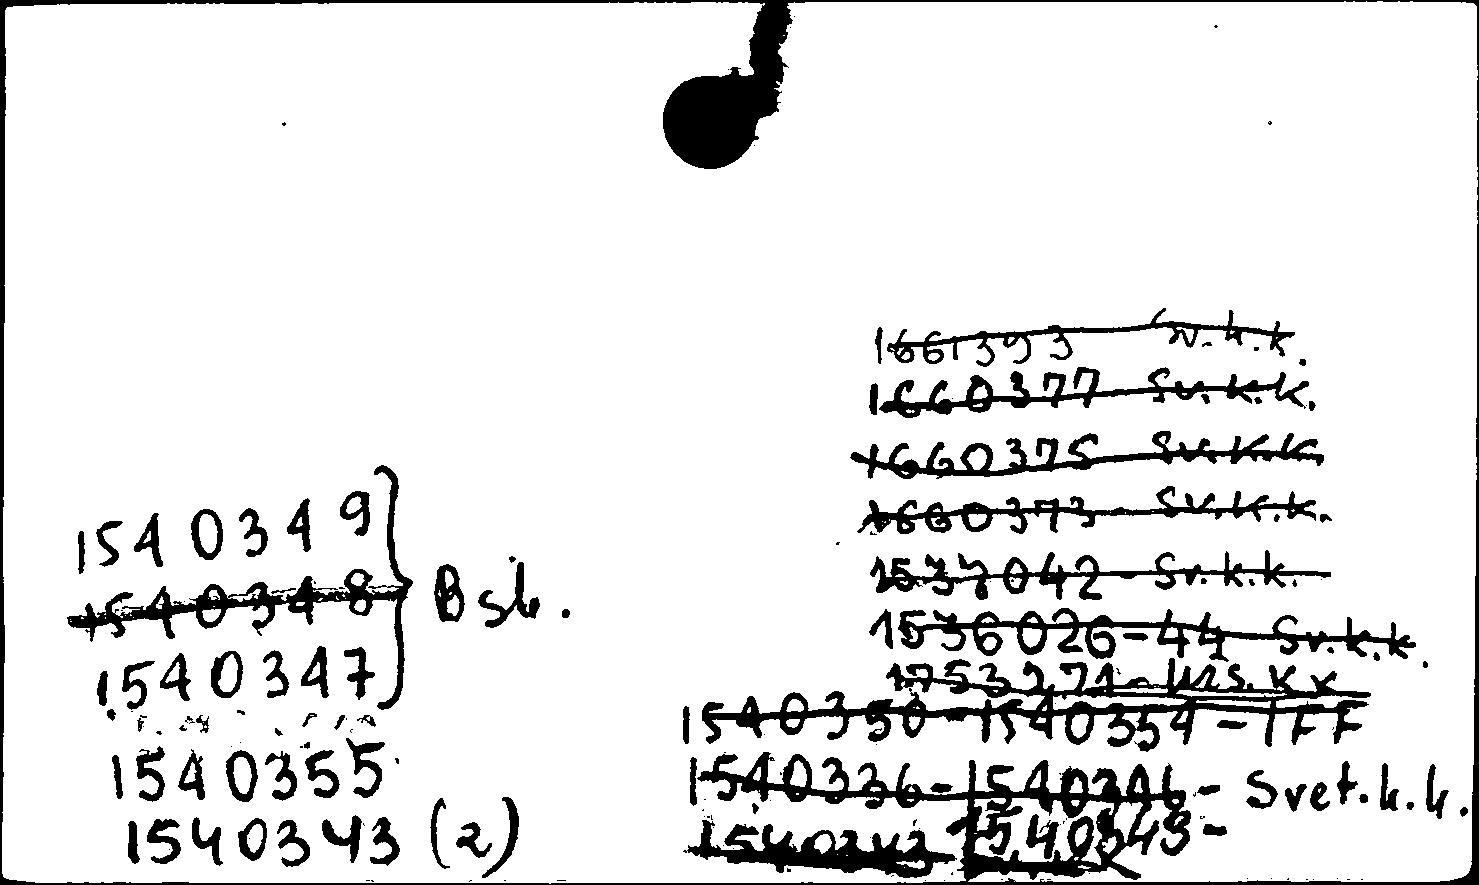 1540349
1540348
1540347
Bsk.
1540355
1540343 (2)
1661393 Sv.k.k.
1660377 Sv.k.k.
1660375 Sv.k.k
1660373 - Sv.k.k.
1537042 - Sv.k.k.
1536026-44 Sv.k.k.
1540350-1540354 - IFF
1540336-1540346 - Svet.k.k.
1540343